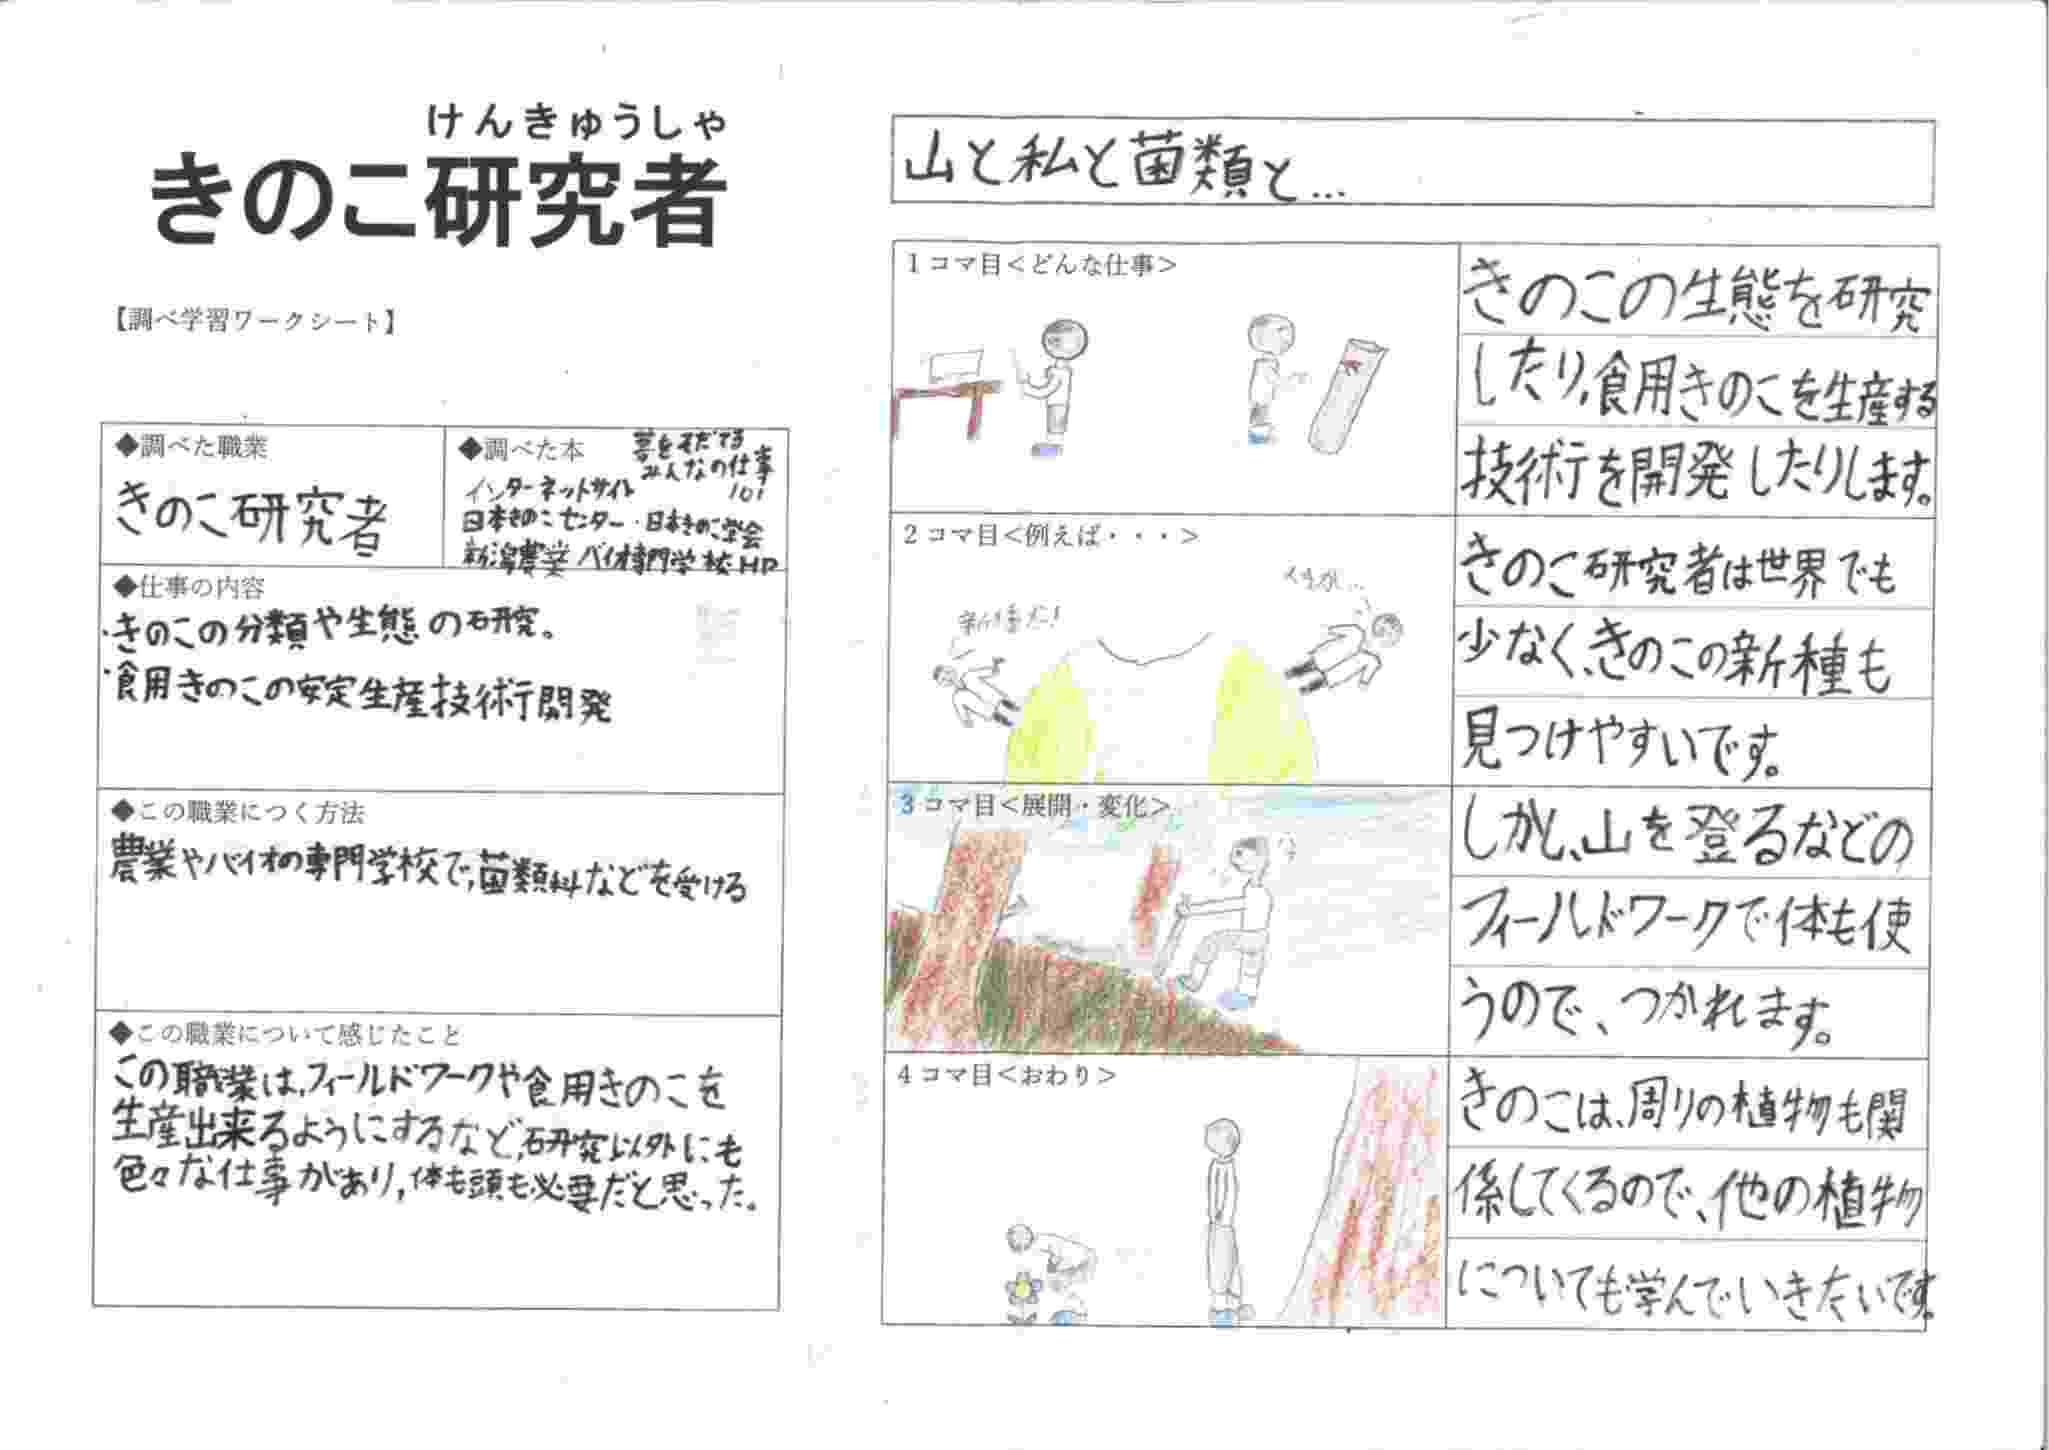 けんきゅうしゃ
きのこ研究者
【調べ学習ワークシート】
◆調べた職業
きのこ研究者
◆調べた本
夢をそだてる
みんなの仕事
101
インターネットサイト
日本きのこセンター・日本きのこ学会
新潟農業バイオ専門学校HP
◆仕事の内容
・きのこの分類や生態の研究。
・食用きのこの安定生産技術開発
◆この職業につく方法
農業やバイオの専門学校で、菌類科などを受ける
◆この職業について感じたこと
この職業は、フィールドワークや食用きのこを
生産出来るようにするなど、研究以外にも
色々な仕事があり、体も頭も必要だと思った。
山と私と菌類と…
1コマ目<どんな仕事>
きのこの生態を研究
したり、食用きのこを生産する
技術を開発したりします。
2コマ目<例えば・・・>
新種だ!
きのこ研究者は世界でも
少なく、きのこの新種も
見つけやすいです。
3コマ目<展開・変化>
しかし、山を登るなどの
フィールドワークで体も使
うので、つかれます。
4コマ目<おわり>
きのこは、周りの植物も関
係してくるので、他の植物
についても学んでいきたいです。